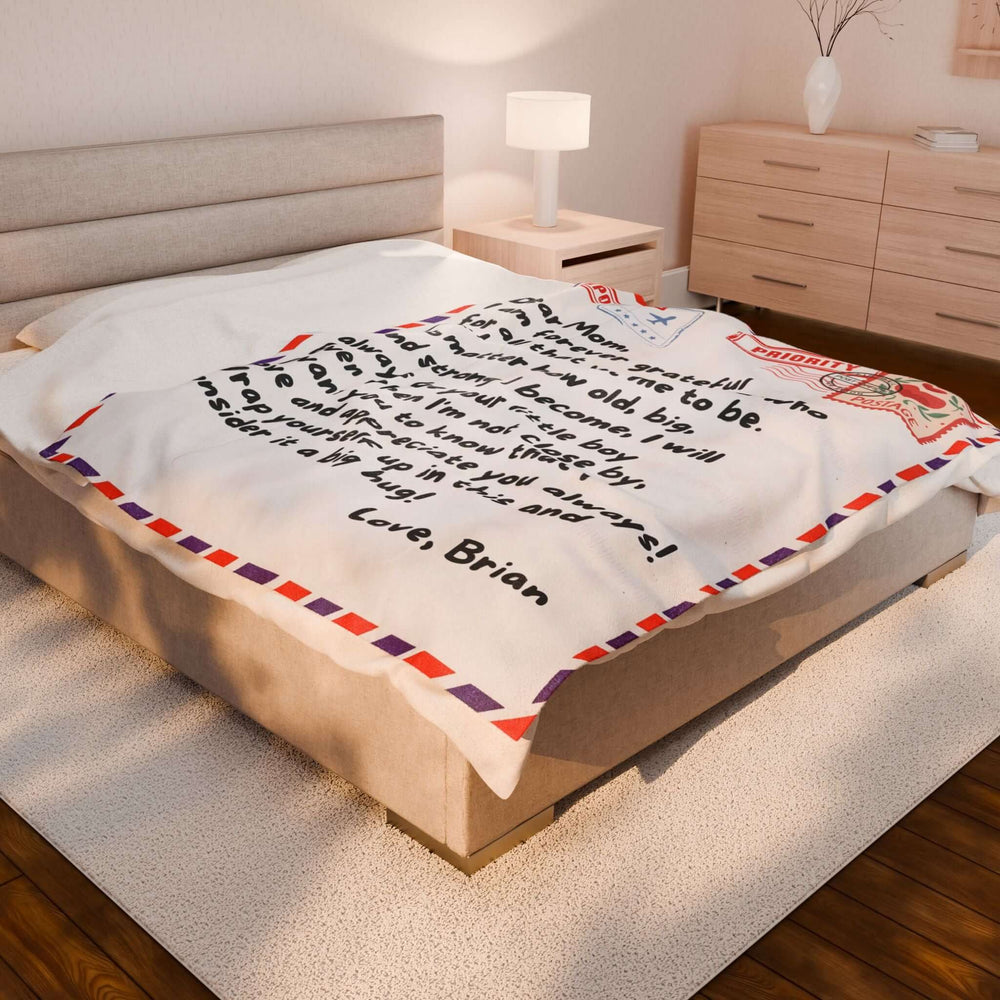 Dear Mom,
I am forever grateful who
for all that me to be.
matter how old, big,
and strong I become, I will
always your little boy
when I'm not close by.
I want you to know that I
love and appreciate you always!
Wrap yourself up in this and
consider it a big hug!
Love, Brian
PRIORITY
POSTAGE